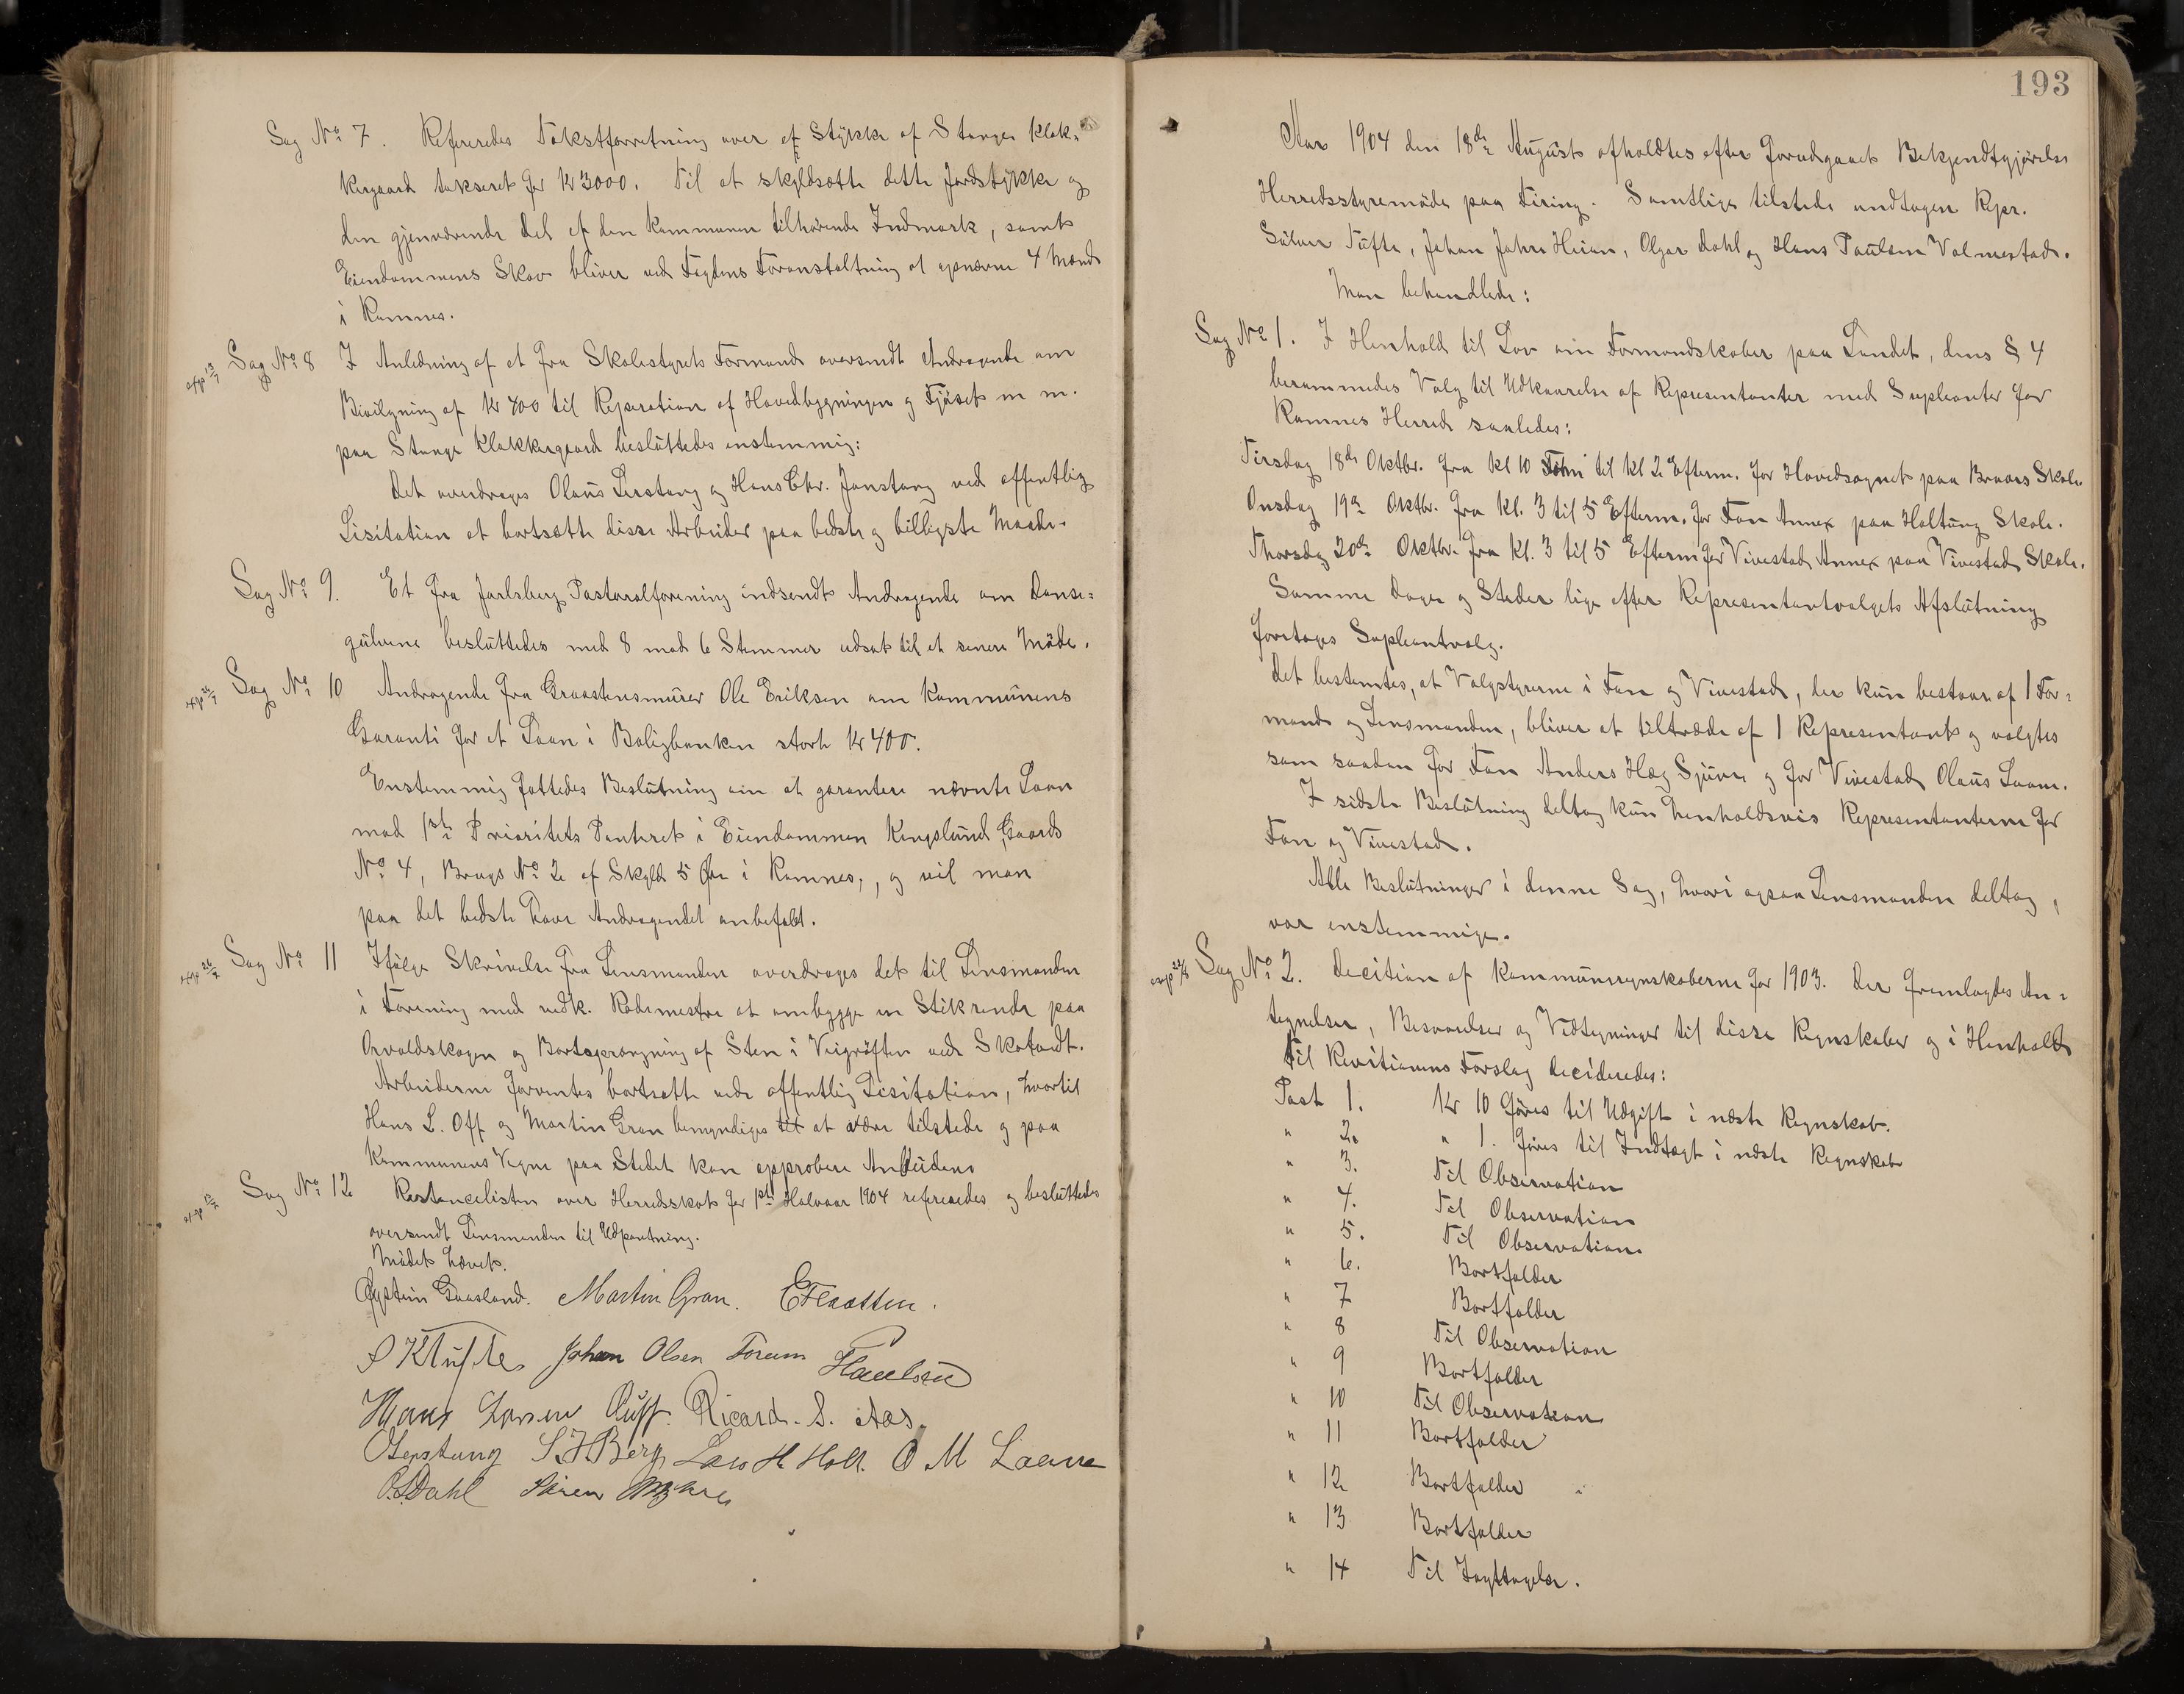 Sag No 7. Refereredes Takstforretning over et Stykke af Stange Klok-
kergaard takseret for Kr 3000. Til at skyldsætte dette Jordstykke og
den gjenværende del af den Kommunen tilhørende Indmark, samt
Eiendommens Skov bliver ved Fogdens Foranstaltning at opnævne 4 Mænd
i Ramnes.
Sag No 8 I Anledning af et fra Skolestyrets Formand oversendt Andragende om
Bevilgning af Kr 400 til Reparation af Hovedbygningen og Fjöset m m.
paa Stange Klokkergaard besluttedes enstemmig:
Det overdrages Olaus Linstang og Hans Chr. Jonstang ved offentlig
Lisitation at bortsætte disse Arbeider paa bedste og billigste Maade.
Sag No 9. Et fra Jarlsberg Pastoralforening indsendt Andragende om Danse-
gulvene besluttedes med 8 mod 6 Stemmer udsat til et senere Möde.
Sag No 10 Andragende fra Graastensmurer Ole Eriksen om Kommunens
Garanti for et Laan i Boligbanken stort Kr 400.
Enstemmig fattedes Beslutning om at garantere nævnte Laan
mod 1ste Prioritets Panteret i Eiendommen Kongslund, Gaards
No 4, Brugs No 2 af Skyld 5 Øre i Ramnes, og vil man
paa det bedste have Andragendet anbefalet.
Sag No 11 Ifölge Skrivelse fra Lensmanden overdrages det til Lensmanden
i Forening med vedk. Rodemestre at ombygge en Stikrende paa
Orvoldskogen og Bortsprængning af Sten i Veigröften ved Skatvedt.
Arbeiderne forventes bortsatte ved offentlig Lisitation, hvortil
Hans L. Off og Martin Gran bemyndiges til at være tilstede og paa
Kommunens Vegne paa Stedet kan approbere Anbudene
Sag No 12 Restancelisten over Herredsskat for 1ste Halvaar 1904 refereredes og besluttedes
oversendt Lensmanden til Udpantning.
Mödet hævet.
Øystein Gaasland. Martin Gran. E Flaatten.
S K Tufte Johan Olsen Foreum H Paulsen
Hans Larsen Ouff. Ricard. S. Aas.
O Lerstang S. H Berg Lars H Holt. O M Laane
O. L. Dahl Sören
193
Aar 1904 den 18de August afholdtes efter forudgaaet Bekjendtgjörelse
Herredsstyremöde paa Firing. Samtlige tilstede undtagen Repr.
Sölver Tufte, Johan Jahre Heian, Olgar Dahl og Hans Paulsen Volmestad.
Man behandlede:
Sag No 1. I Henhold til Lov om Formandskaber paa Landet, dens § 4
berammedes Valg til Udkaarelse af Representanter med Supleanter for
Ramnes Herred saaledes:
Tirsdag 18de Oktbr. fra Kl 10 Form til kl 2 Efterm. for Hovedsognet paa Braars Skole.
Onsdag 19de Oktbr. fra Kl. 3 til 5 Efterm. for Fon Annex paa Holtung Skole.
Thorsdag 20de Oktbr. fra Kl. 3 til 5 Efterm for Vivestad Annex paa Vivestad Skole.
Samme Dage og Steder lige efter Representantvalgets Afslutning
foretages Supleantvalg.
Det bestemtes, at Valgstyrerne i Fon og Vivestad, der kun bestaar af 1 For-
mand og Lensmanden, bliver at tiltræde af 1 Representant og valgtes
som saadan for Fon Anders Hæg Sjuve og for Vivestad Olaus Laane.
I sidste Beslutning deltog kun henholdsvis Representanterne for
Fon og Vivestad.
Alle Beslutninger i denne Sag, hvori ogsaa Lensmanden deltog,
var enstemmige.
Sag No 2. Decition af Kommuneregnskaberne for 1903. Der fremlagdes An-
tegnelser, Besvarelser og Vedtegninger til disse Regnskaber og i Henhold
til Revitionens Forslag decideredes:
Post 1. Kr 10 föres til Udgift i næste Regnskab.
" 2. " 1. föres til Indtægt i næste Regnskab
" 3. Til Observation
" 4. Til Observation
" 5. Til Observation
" 6. Bortfalder
" 7 Bortfalder
" 8 Til Observation
" 9 Bortfalder
" 10 Til Observation
" 11 Bortfalder
" 12 Bortfalder
" 13 Bortfalder
" 14 Til Iagttagelse.